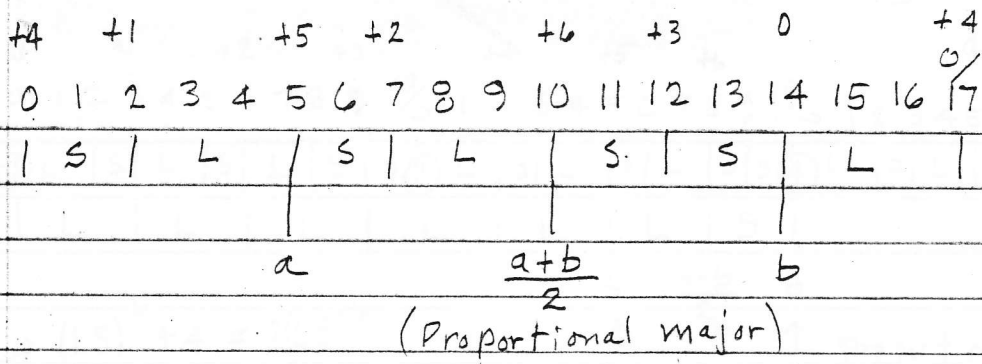 +4 +1 +5 +2 +6 +3 0 +4
0 1 2 3 4 5 6 7 8 9 10 11 12 13 14 15 16 0/17
S L S L S. S L
a a+b/2 b
(Proportional major)